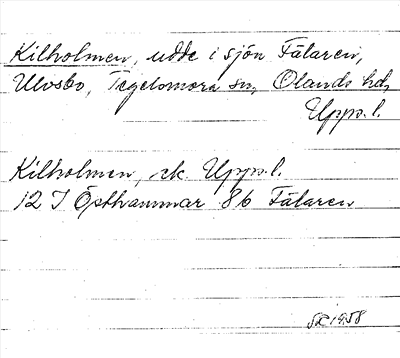 Kilholmen, udde i sjön Fälaren,
Ulvsbo, Tegelsmora sn, Olands hd,
Upps.l.
Kilholmen, ek. Upps.l.
12 I Östhammar 8b Fälaren
1958